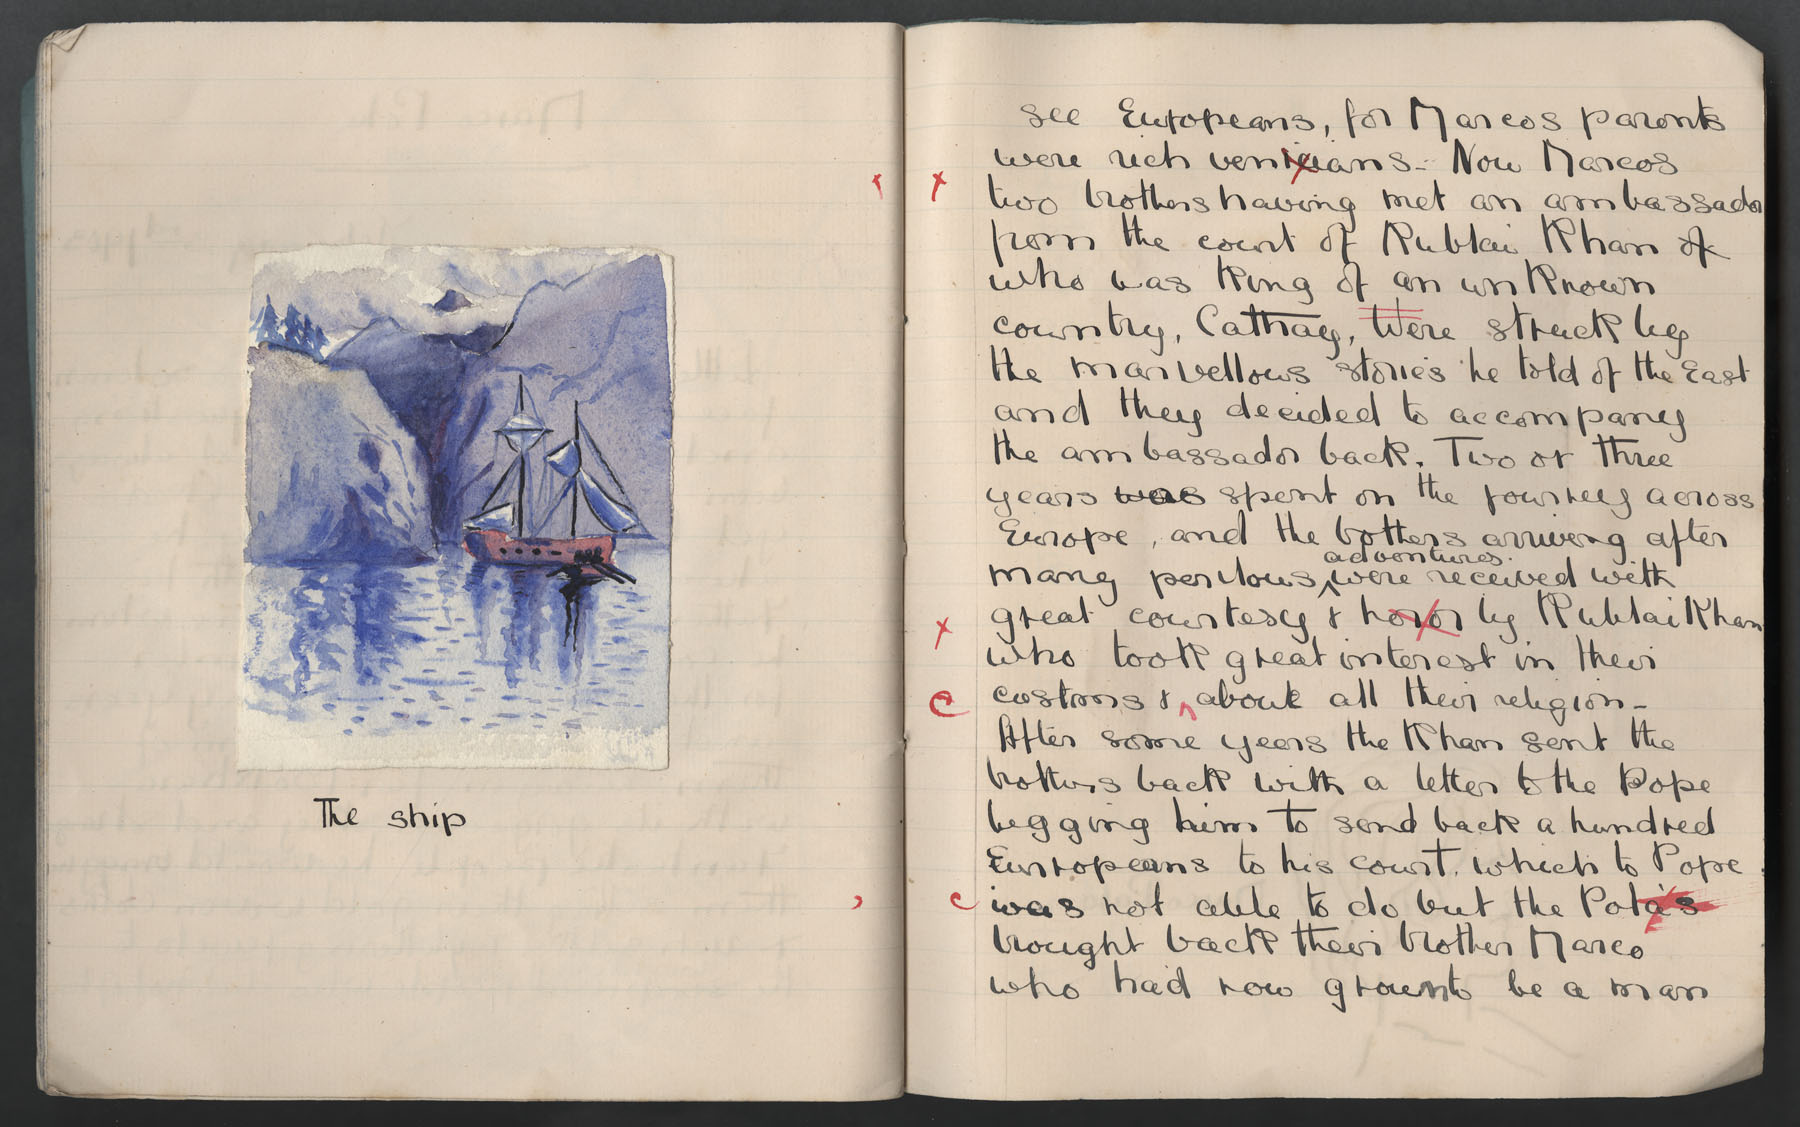 The ship
see Europeans, for Marcos parents
were rich venicians. Now Marcos
two brothers having met an ambassador
from the court of Kublai Khan of
who was King of an unknown
country, Cathay, Were struck by
the marvellous stories he told of the East
and they decided to accompany
the ambassador back. Two or three
years was spent on the journey across
Europe, and the bothers arriving after
many perilous, adventures. were received with
great courtesy & honor by Kublai Khan
who took great interest in their
customs & about all their religion-
After some years the Khan sent the
brothers back with a letter to the Pope
begging him to send back a hundred
Europeans to his court. which to Pope
was not able to do but the Pola's
brought back their brother Marco
who had now grown to be a man